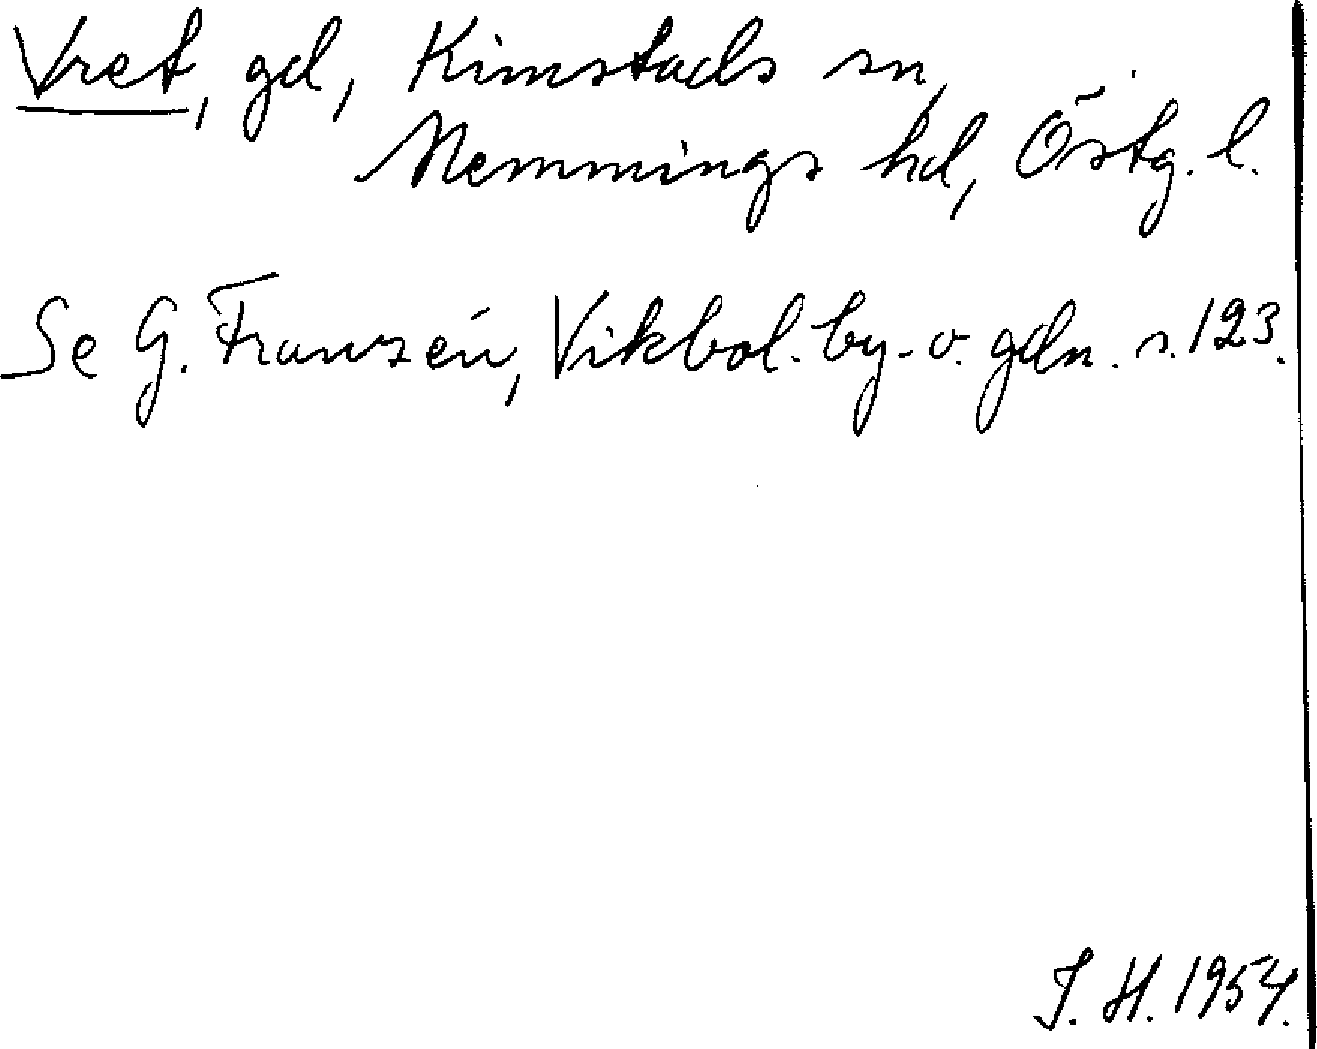 Vret, gd, Kimstads sn,
Memmings hd, Östg. l.
Se G. Franzén, Vikbol. by- o. gdn. s. 123.
J. H. 1954.